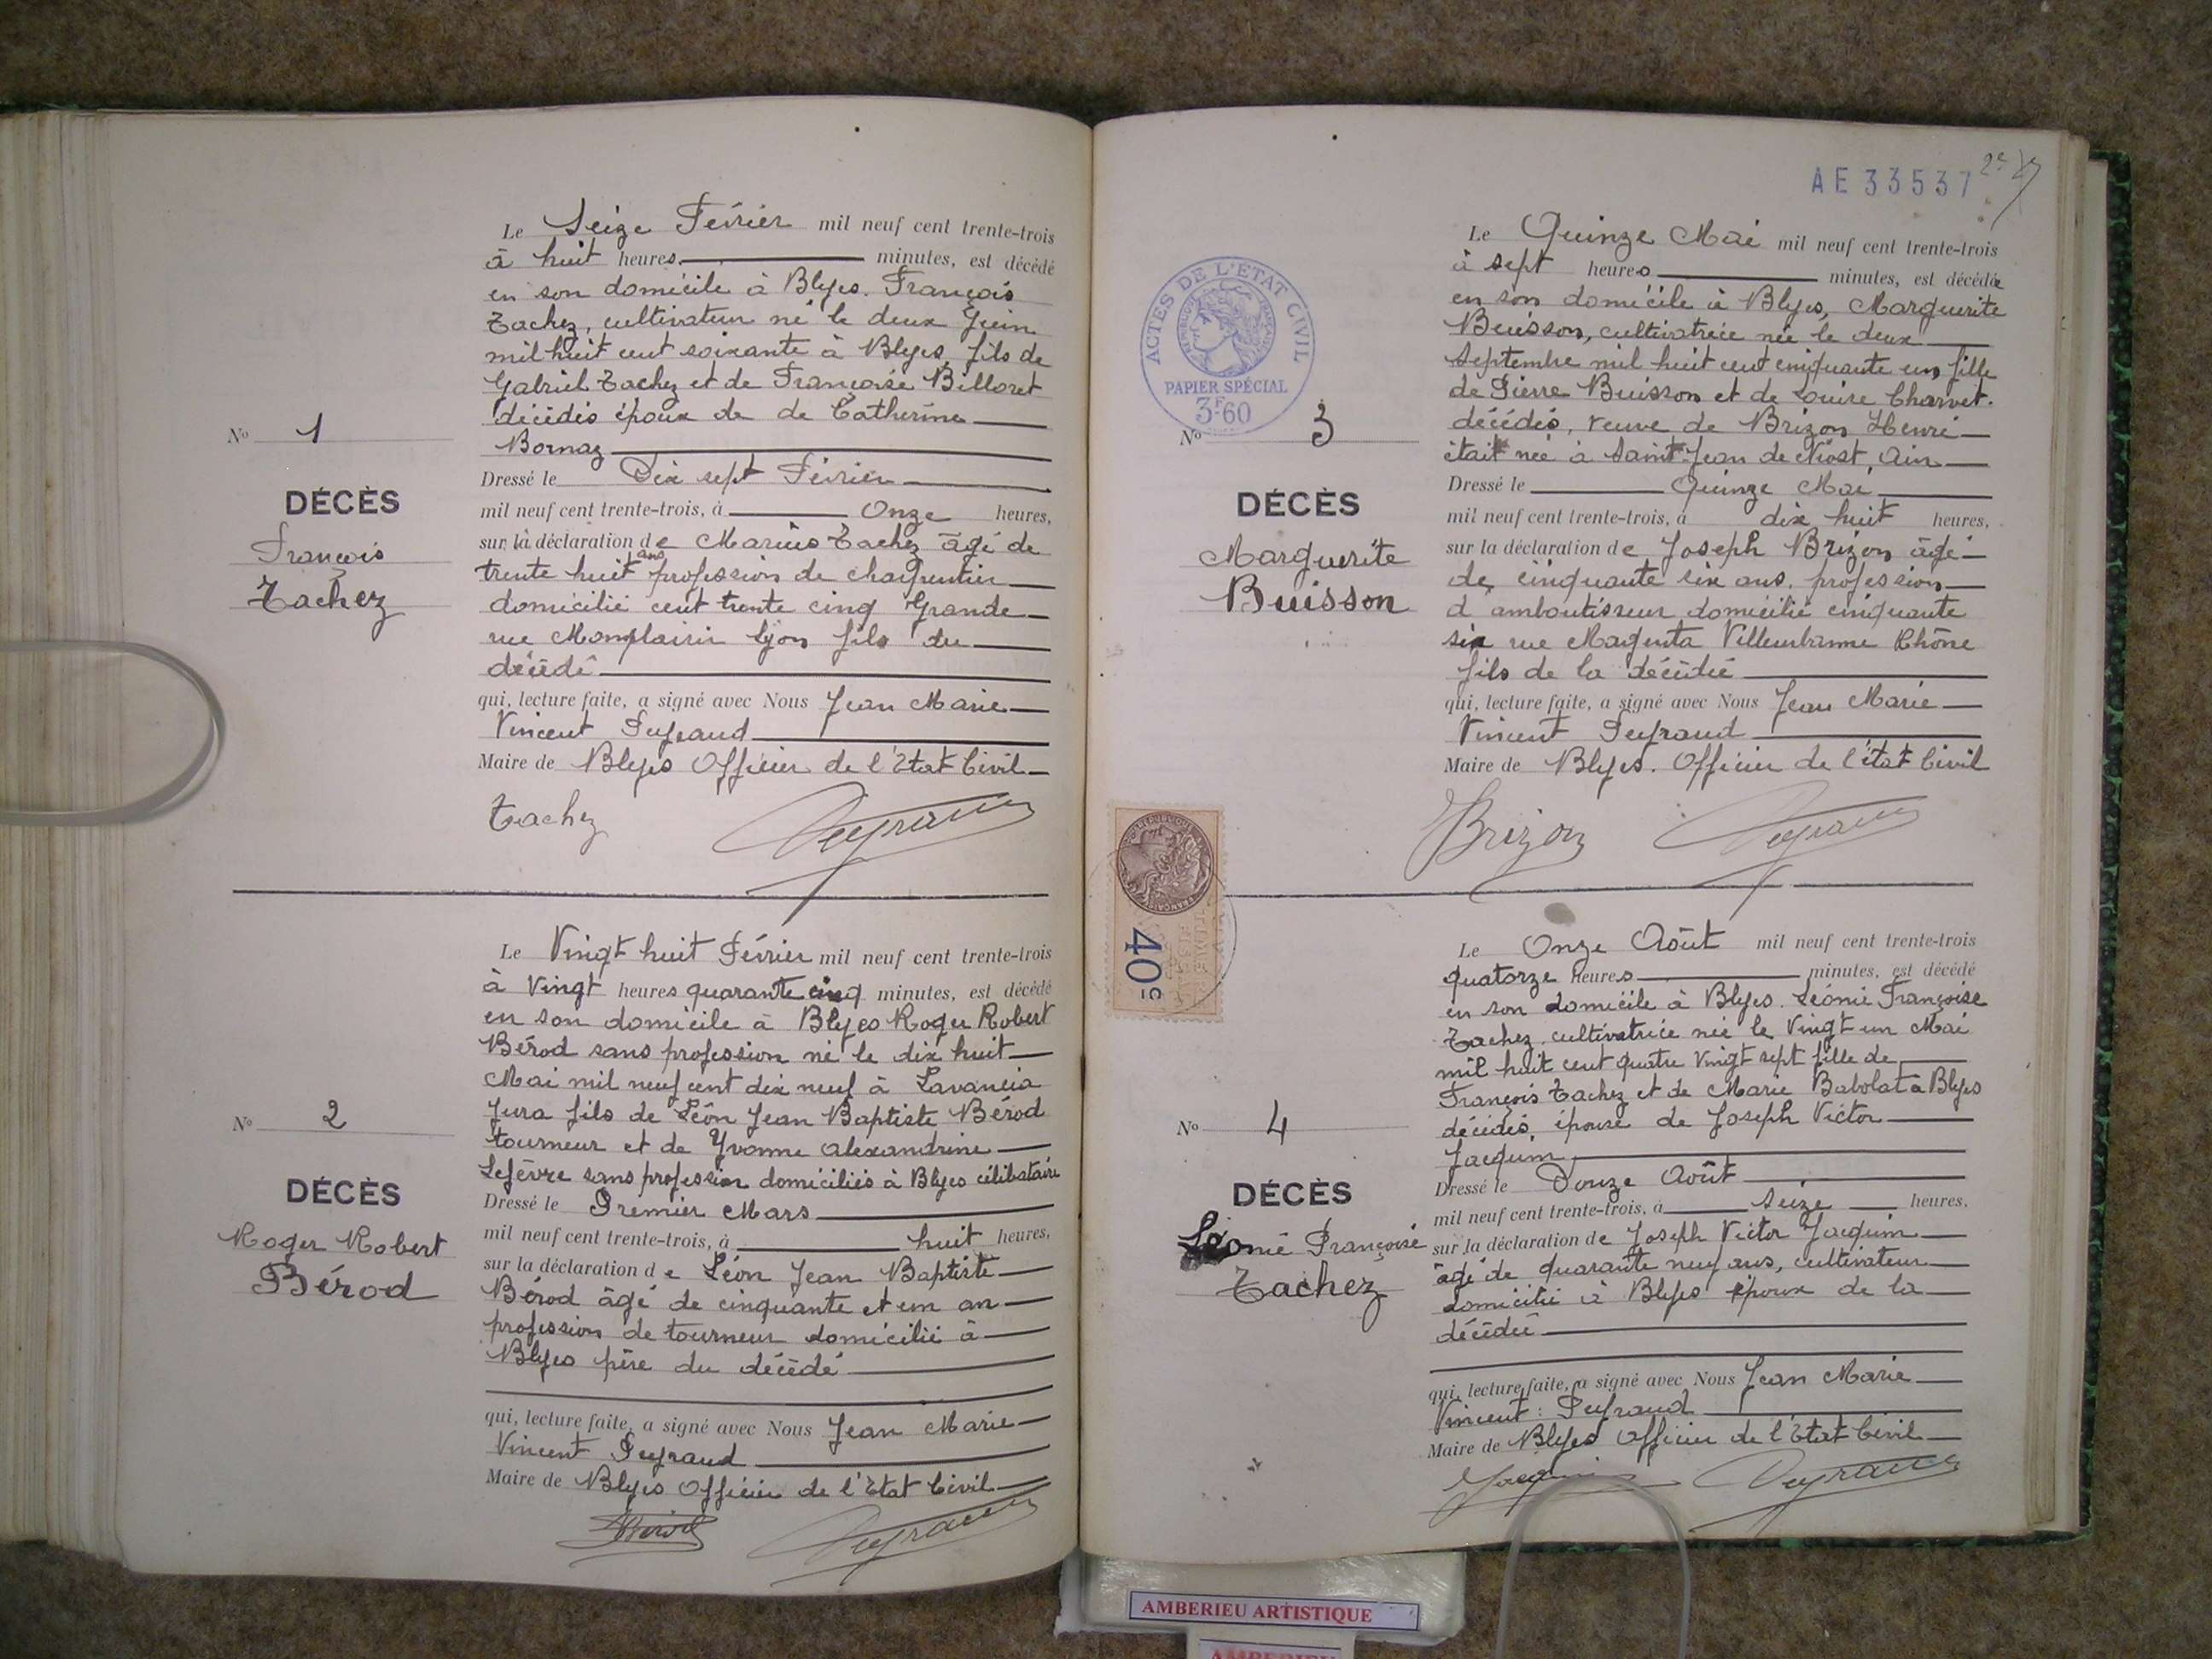 Le Seize Février mil neuf cent trente-trois
à huit heures minutes, est décédé
en son domicile à Blyes. François
Tachez, cultivateur né le deux Juin
mil huit cent soixante à Blyes, fils de
Gabriel Tachez et de Françoise Billoret
décédés époux de de Catherine
Bornaz
Nº 1
DÉCÈS
François
Tachez
Dressé le Dix sept Février
mil neuf cent trente-trois, à Onze heures,
sur la déclaration de Marius Tachez âgé de
trente huit ans profession de charpentier
domicilié cent trente cinq Grande
rue Monplaisir Lyon fils du
décédé
qui, lecture faite, a signé avec Nous Jean Marie
Vincent Peyraud
Maire de Blyes Officier de l'Etat Civil
Tachez Peyraud
Le Vingt huit Février mil neuf cent trente-trois
à Vingt heures quarante cinq minutes, est décédé
en son domicile à Blyes Roger Robert
Bérod sans profession né le dix huit
Mai mil neuf cent dix neuf à Lavancia
Jura fils de Léon Jean Baptiste Bérod
tourneur et de Yvonne Alexandrine
Lefèvre sans profession domiciliés à Blyes célibataire
Nº 2
DÉCÈS
Roger Robert
Bérod
Dressé le Premier Mars
mil neuf cent trente-trois, à huit heures,
sur la déclaration de Léon Jean Baptiste
Bérod âgé de cinquante et un an
profession de tourneur domicilié à
Blyes père du décédé
qui, lecture faite, a signé avec Nous Jean Marie
Vincent Peyraud
Maire de Blyes Officier de l'Etat Civil
Bérod Peyraud
AE 33537
Le Quinze Mai mil neuf cent trente-trois
à sept heures minutes, est décédée
en son domicile à Blyes, Marguerite
Buisson, cultivatrice née le deux
Septembre mil huit cent cinquante un fille
de Pierre Buisson et de Louise Charvet.
décédés, veuve de Brizon Henri
était née à Saint-Jean de Niost, Ain
ACTES DE L'ETAT CIVIL
PAPIER SPÉCIAL
3F60
Nº 3
DÉCÈS
Marguerite
Buisson
Dressé le Quinze Mai
mil neuf cent trente-trois, à dix huit heures,
sur la déclaration de Joseph Brizon âgé
de cinquante six ans, profession
d'emboutisseur domicilié cinquante
six rue Magenta Villeurbanne Rhône
fils de la décédée
qui, lecture faite, a signé avec Nous Jean Marie
Vincent Peyraud
Maire de Blyes. Officier de l'état Civil
Brizon Peyraud
40c
Le Onze Août mil neuf cent trente-trois
quatorze heures minutes, est décédé
en son domicile à Blyes. Léonie Françoise
Tachez cultivatrice née le Vingt un Mai
mil huit cent quatre vingt sept fille de
François Tachez et de Marie Babolat à Blyes
décédés, épouse de Joseph Victor
Jacquin
Nº 4
DÉCÈS
Léonie Françoise
Tachez
Dressé le Douze Août
mil neuf cent trente-trois, à seize heures,
sur la déclaration de Joseph Victor Jacquin
âgé de quarante neuf ans, cultivateur
domicilié à Blyes époux de la
décédée
qui, lecture faite, a signé avec Nous Jean Marie
Vincent Peyraud
Maire de Blyes Officier de l'Etat Civil
Jacquin Peyraud
AMBERIEU ARTISTIQUE
AMBERIEU